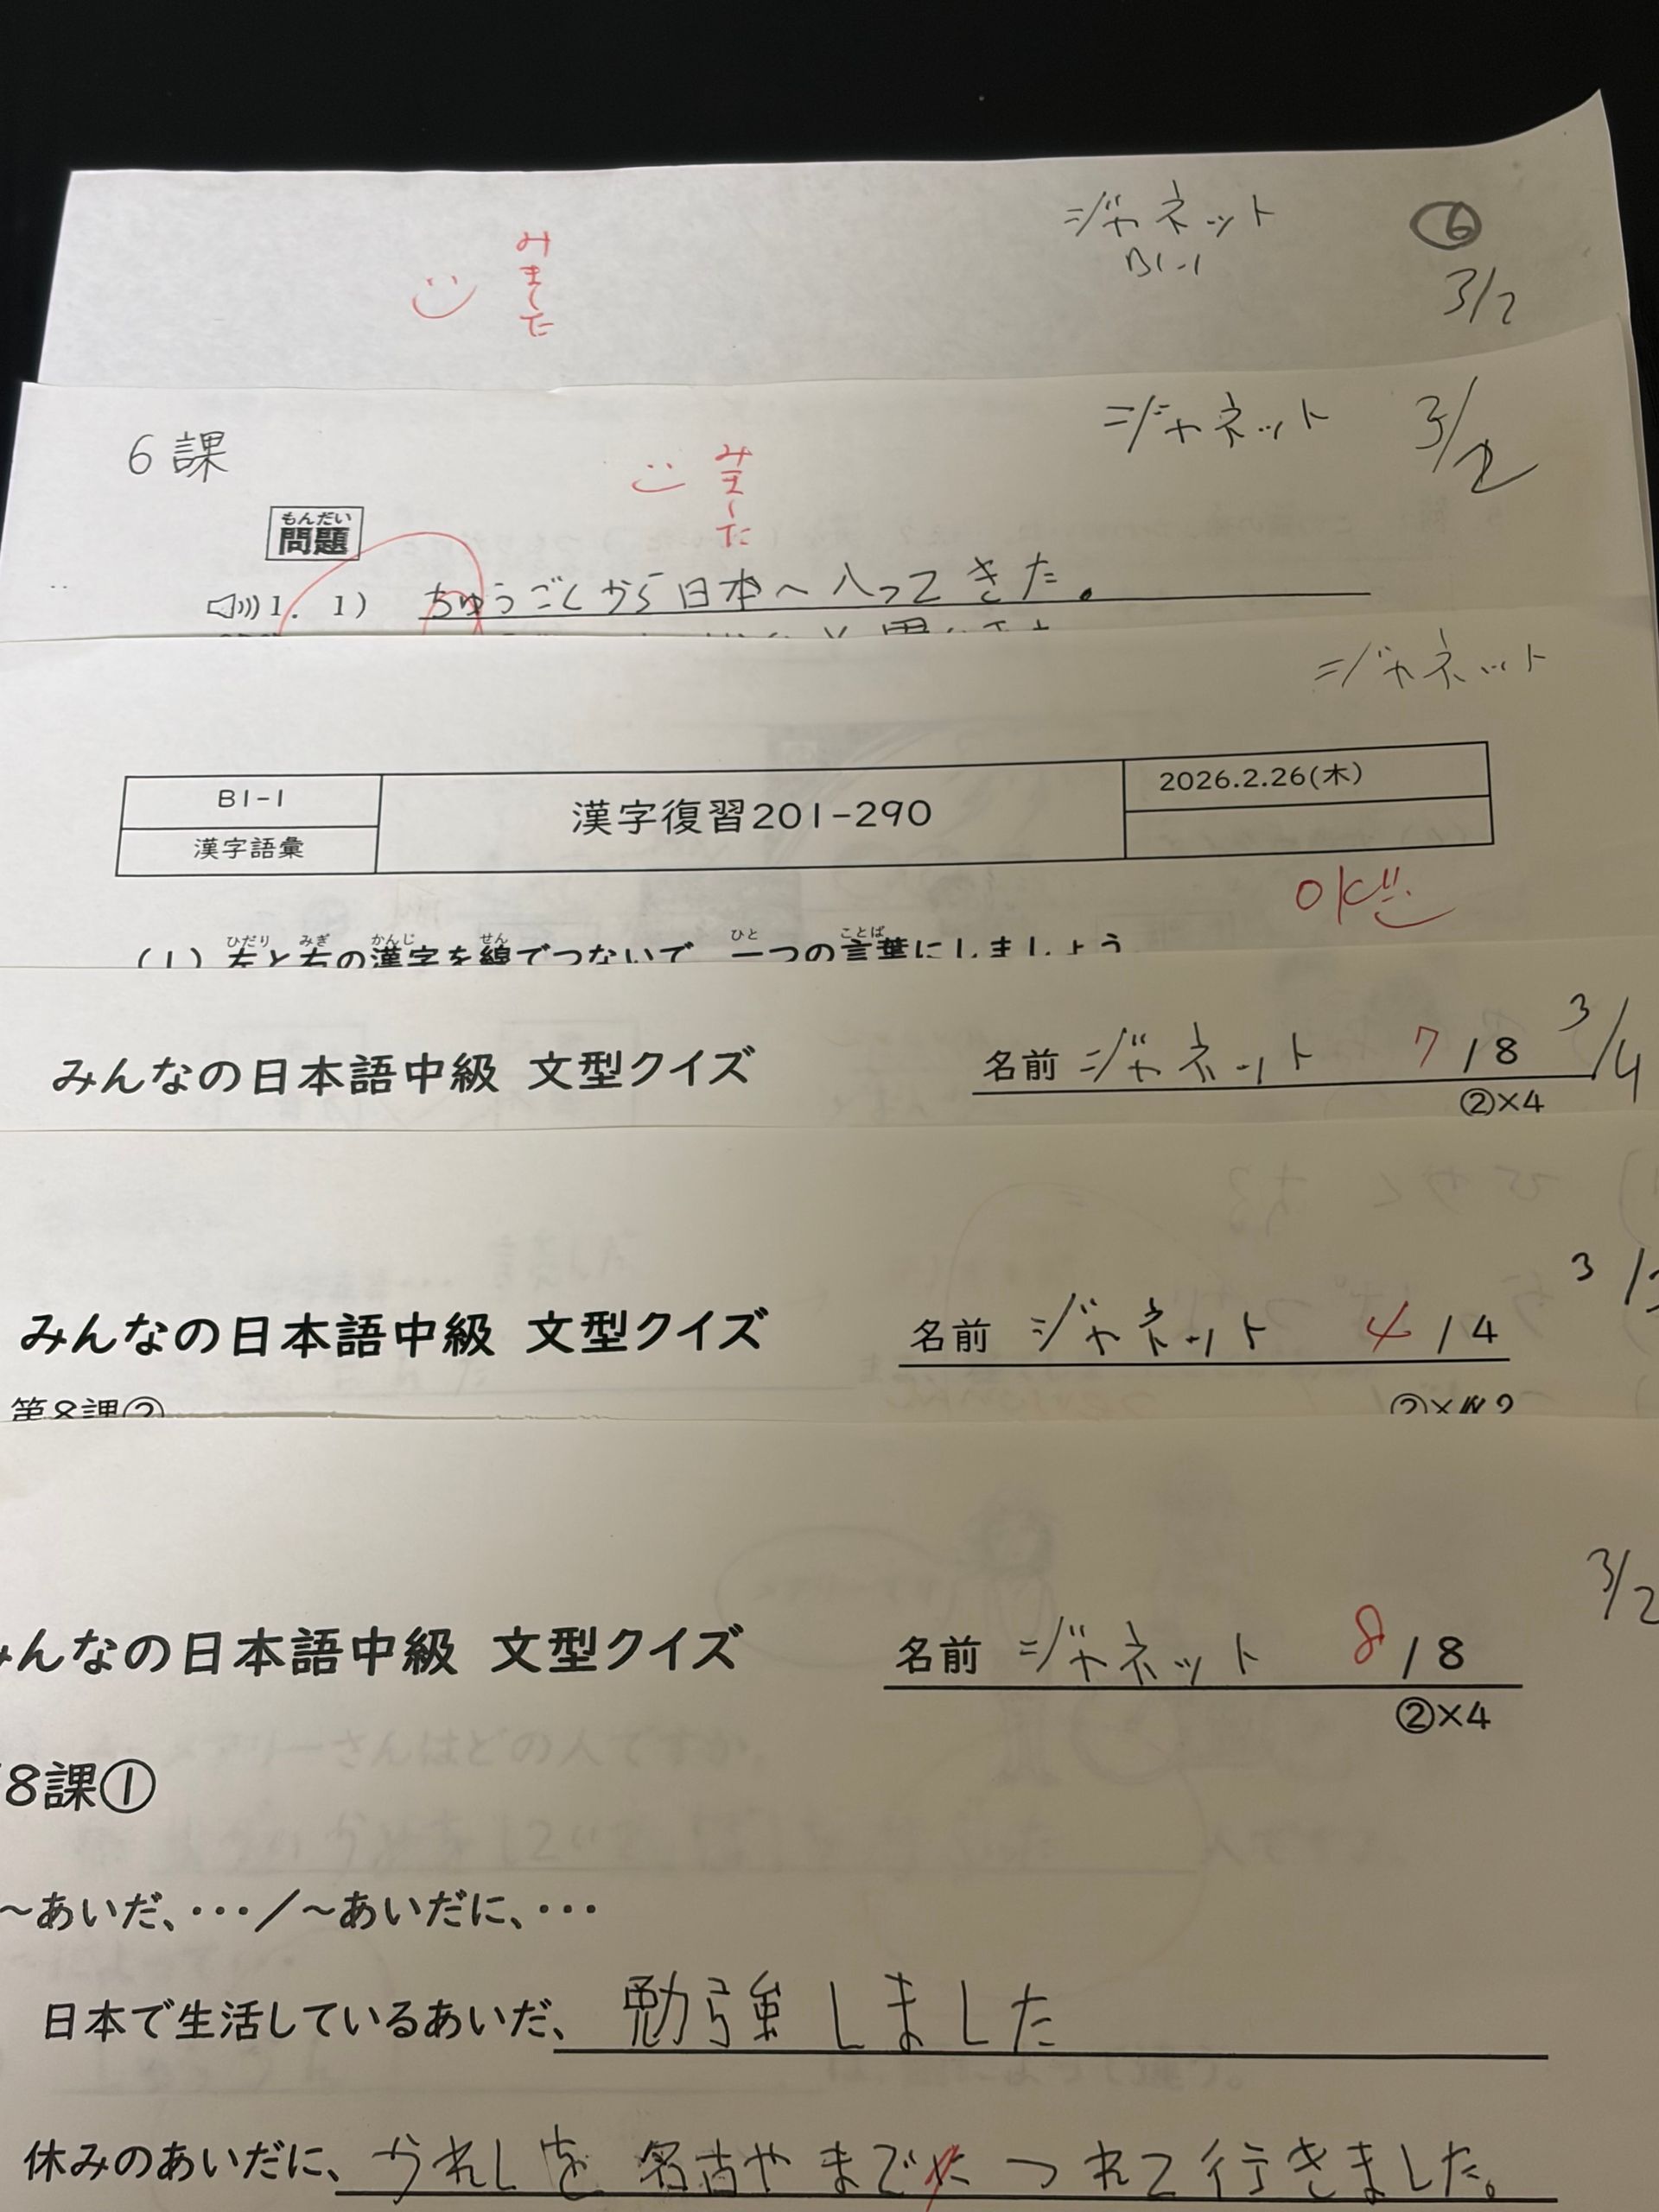 ジャネット ⑥
みました
B1-1
3/2
ジャネット 3/2
6課
みました
もんだい
問題
1. 1) ちゅうごくから日本へ入ってきた。
ジャネット
B1-1
漢字語彙
漢字復習201-290
2026.2.26(木)
OK
ひだり みぎ かんじ せん ひと ことば
(1) 左と右の漢字を線でつないで、一つの言葉にしましょう
みんなの日本語中級 文型クイズ 名前 ジャネット 7/8 3/4
②×4
3/
みんなの日本語中級 文型クイズ 名前 ジャネット 4/4
第8課② ②×2
3/2
みんなの日本語中級 文型クイズ 名前 ジャネット 8/8
②×4
8課①
~あいだ、···/~あいだに、···
日本で生活しているあいだ、勉強しました
休みのあいだに、かれしを名古やまで つれて行きました。